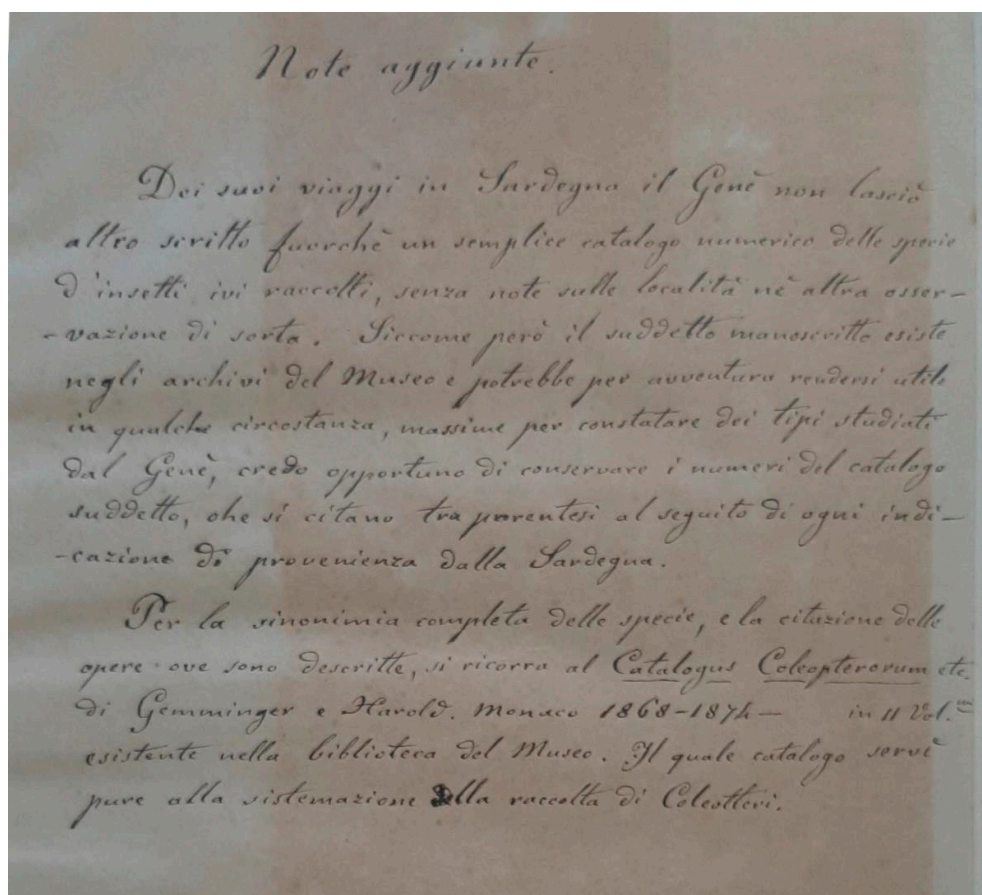 Note aggiunte.
Dei suoi viaggi in Sardegna il Genè non lasciò
altro scritto fuorchè un semplice catalogo numerico delle specie
d'insetti ivi raccolti, senza note sulle località nè altra osser-
-vazione di sorta. Siccome però il suddetto manoscritto esiste
negli archivi del Museo e potrebbe per avventura rendersi utile
in qualche circostanza, massime per constatare dei tipi studiati
dal Genè, credo opportuno di conservare i numeri del catalogo
suddetto, che si citano tra parentesi al seguito di ogni indi-
-cazione di provenienza dalla Sardegna.
Per la sinonimia completa delle specie, e la citazione delle
opere ove sono descritte, si ricorra al Catalogus Coleopterorum etc.
di Gemminger e Harold. Monaco 1868-1874- in 11 Vol.
esistente nella biblioteca del Museo. Il quale catalogo servì
pure alla sistemazione della raccolta di Coleotteri.